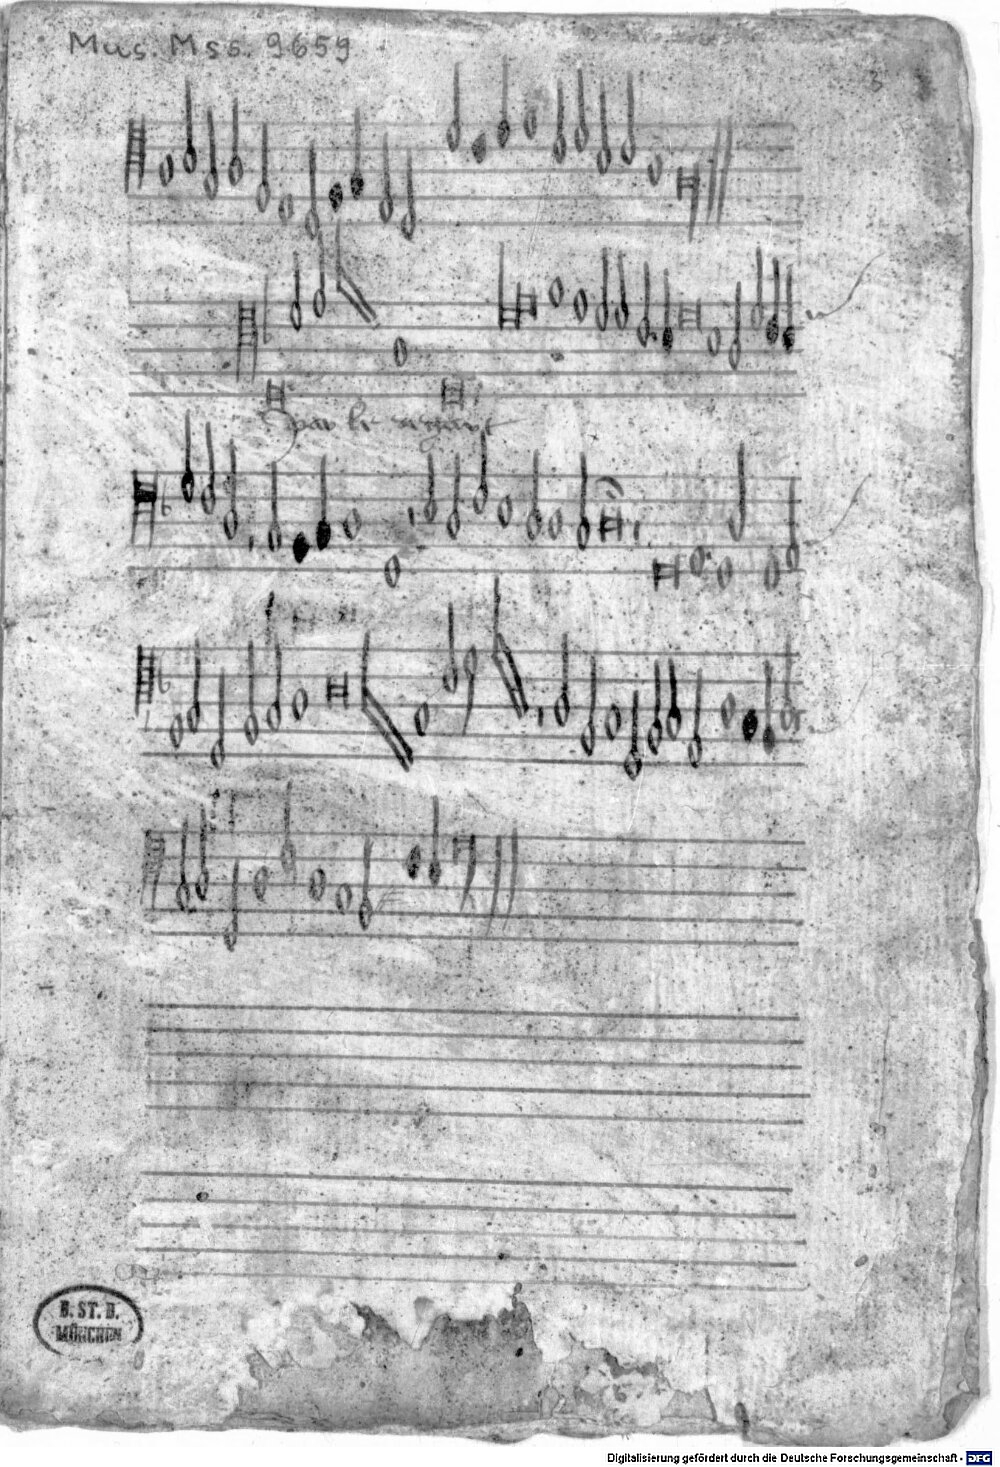 Mus. Mss. 9659
3
par le regart
B. ST. B.
MÜNCHEN
Digitalisierung gefördert durch die Deutsche Forschungsgemeinschaft - DFG